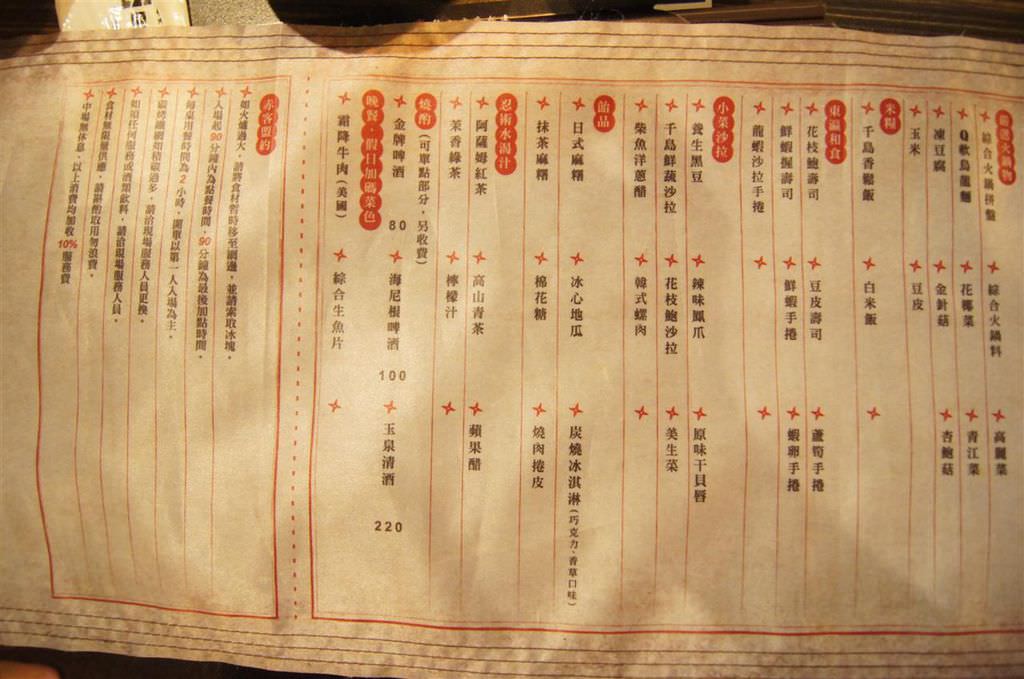 嚴選火鍋物
綜合火鍋拼盤
綜合火鍋料
高麗菜
Q軟烏龍麵
花椰菜
青江菜
凍豆腐
金針菇
杏鮑菇
玉米
豆皮
米糧
千島香鬆飯
白米飯
東瀛和食
花枝鮑壽司
豆皮壽司
蘆筍手捲
鮮蝦握壽司
鮮蝦手捲
蝦卵手捲
龍蝦沙拉手捲
小菜沙拉
養生黑豆
辣味鳳爪
原味干貝唇
千島鮮蔬沙拉
花枝鮑沙拉
美生菜
柴魚洋蔥醋
韓式螺肉
飴品
日式麻糬
冰心地瓜
炭燒冰淇淋(巧克力、香草口味)
抹茶麻糬
棉花糖
燒肉捲皮
忍術水渴汁
阿薩姆紅茶
高山青茶
蘋果醋
茉香綠茶
檸檬汁
燒酌(可單點部分，另收費)
金牌啤酒 80
海尼根啤酒 100
玉泉清酒 220
晚餐．假日加碼菜色
霜降牛肉(美國)
綜合生魚片
赤客盟約
如火爐過大，請將食材暫時移至網邊，並請索取冰塊。
入場起90分鐘內為點餐時間，90分鐘為最後加點時間。
每桌用餐時間為2小時，開單以第一人入場為主。
碳烤鐵網如積碳過多，請洽現場服務人員更換。
如須任何服務或酒類飲料，請洽現場服務人員。
食材無限量供應，請斟酌取用勿浪費。
中場無休息，以上消費均加收10%服務費